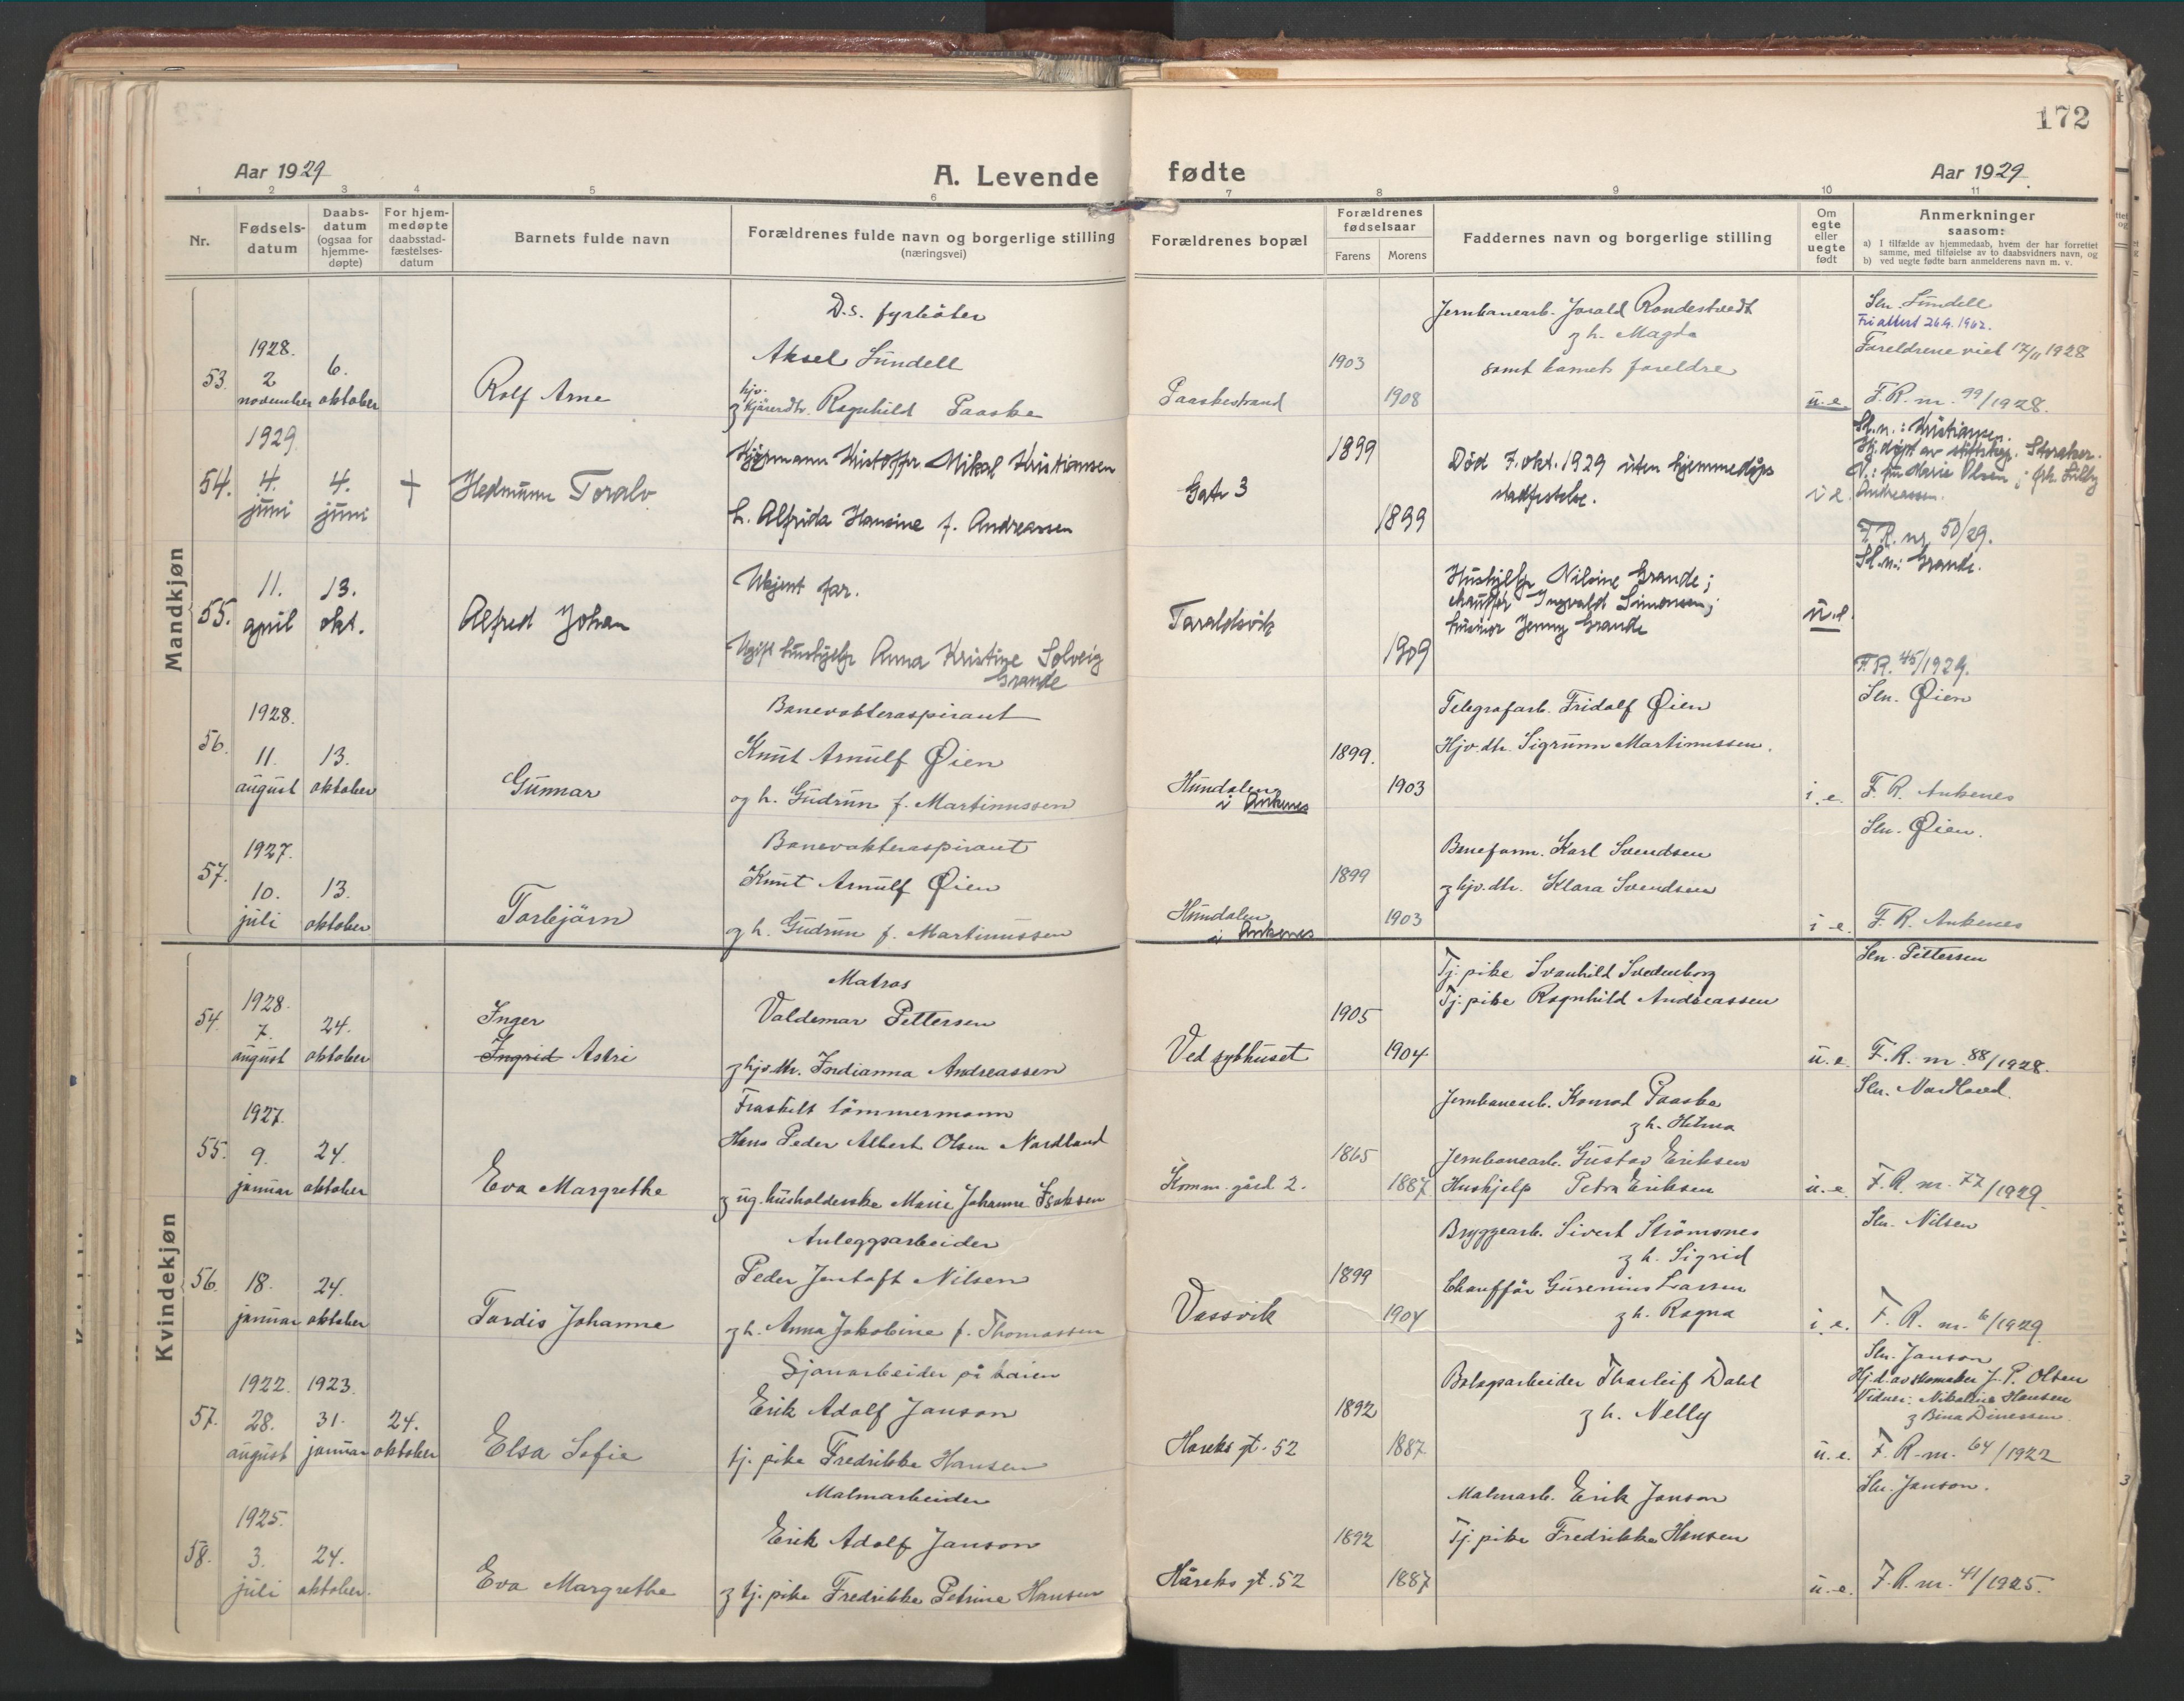 172
Aar 1929
A. Levende fødte
Aar 1929.
1 2 3 4 5 6 7 8 9 10 11
Nr.
Fødsels-
datum
Daabs-
datum
(ogsaa for
hjemme-
døpte)
For hjem-
medøpte
daabsstad-
fæstelses-
datum
Barnets fulde navn
Forældrenes fulde navn og borgerlige stilling
(næringsvei)
Forældrenes bopæl
Forældrenes
fødselsaar
Farens Morens
Faddernes navn og borgerlige stilling
Om
egte
eller
uegte
født
Anmerkninger
saasom:
a) I tilfælde av hjemmedaab, hvem der har forrettet
samme, med tilføielse av to daabsvidners navn, og
b) ved uegte fødte barn anmelderens navn m. v.
Mandkjøn
53.
1928.
2
november
6.
oktober
Rolf Arne
D.s. fyrböter
Aksel Lundell
hjv.
Ragnhild Paaske
Paaskestrand
1903
1908
Jernbanearb. Jorald Rondestvedt
z h. Magda
samt barnets foreldre
u.e.
Sln. Lundell
Fri attest 26.9.1962.
Foreldrene viet 17/11 1928
F.R. nr. 99/1928.
54.
1929
4.
juni
4.
juni
+
Hedmunn Toralv
Kristoffer Mikal Kristiansen
h. Alfrida Hansine f. Andreassen
Gate 3
1899
1899
Død 7. okt. 1929 uten hjemmedåps
stadfestelse.
i e.
Sl.n.: Kristiansen.
Hj.døpt av Storaker.
V.: fru Marie Olsen; frk. Lilly
Andreassen.
F.R. nr 50/29.
55.
11.
april
13.
okt.
Alfred Johan
Ukjent far.
Ugift hushjelp Anna Kristine Solveig
Grande
Taraldsvik
1909
Hushjelp Nilsine Grande;
chauffør Ingvald Simonsen;
husmor Jenny Grande
u.e.
Sl.n.: Grande.
F.R. 45/1929.
56.
1928.
11.
august
13.
oktober
Gunnar
Banevokteraspirant
Knut Arnulf Øien
og h. Gudrun f. Martinussen
Hundalen
i Ankenes
1899.
1903
Telegrafarb. Fridolf Øien
Hjv. dtr. Sigrunn Martinussen.
i. e.
Sln. Øien
F.R. Ankenes
57.
1927.
10.
juli
13.
oktober
Torbjörn
Banevokteraspirant
Knut Arnulf Øien
og h. Gudrun f. Martinussen
Hundalen
i Ankenes
1899
1903
Baneform. Karl Svendsen
z hjv. dtr. Klara Svendsen
i e.
Sln. Øien.
F.R. Ankenes
Kvindekjøn
54.
1928.
7.
august
24.
oktober
Inger
Ingrid Astri
Matros
Valdemar Pettersen
z hjv. dtr. Indianna Andreassen
Ved sykhuset
1905
1904
Tj. pike Svanhild Svedenborg
Tj. pike Ragnhild Andreassen
u.e.
Sln. Pettersen
F.R. nr 88/1928.
55.
1927.
9.
januar
24.
oktober
Eva Margrethe
Fraskilt tömmermann
Hans Peder Albert Olsen Nordland
z ug. husholderske Marie Johanne Isaksen
Komm. gård 2.
1865
1887
Jernbanearb. Konrad Paaske
z h. Helma
Jernbanearb. Gustav Eriksen
Hushjelp Petra Eriksen
u.e.
Sln. Nordland.
F.R. nr. 77/1929.
56.
18.
januar
24.
oktober
Tordis Johanne
Anleggsarbeider
Peder Jentoft Nilsen
z h. Anna Jakobine f. Thomassen
Vassvik
1899
1904
Bryggearb. Sivert Strömsnes
z h. Sigrid
Chaufför Gurenius Larsen
z h. Ragna
i. e.
Sln. Nilsen
F.R. nr. 6/1929.
57.
1922.
28.
august
1923.
31.
januar
24.
oktober
Elsa Sofie
Sjauarbeider på kaien
Erik Adolf Janson
tj. pike Fredrikke Hansen
Hareks gt. 52
1892
1887
Bolagsarbeider Thorleif Dahl
z h. Nelly
u.e.
Sln. Janson
Hj.d. av skomaker J. P. Olsen
Vidner: Nikoline Hansen
z Bina Dinessen.
F.R. nr. 64/1922
58.
1925.
3.
juli
24.
oktober.
Eva Margrethe
Malmarbeider
Erik Adolf Janson
z tj. pike Fredrikke Petrine Hansen
Håreks gt. 52
1892
1887
Malmarb. Erik Janson
Tj. pike Fredrikke Hansen
u.e.
Sln. Janson.
F.R. nr. 41/1925.